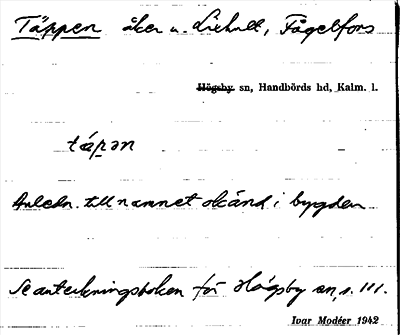 Täppen åker u. Liehult, Fågelfors
Högsby sn, Handbörds hd, Kalm. l.
tápən
Anledn. till namnet okänd i bygden
Se anteckningsboken för Högsby sn, s. 111.
Ivar Modéer 1942